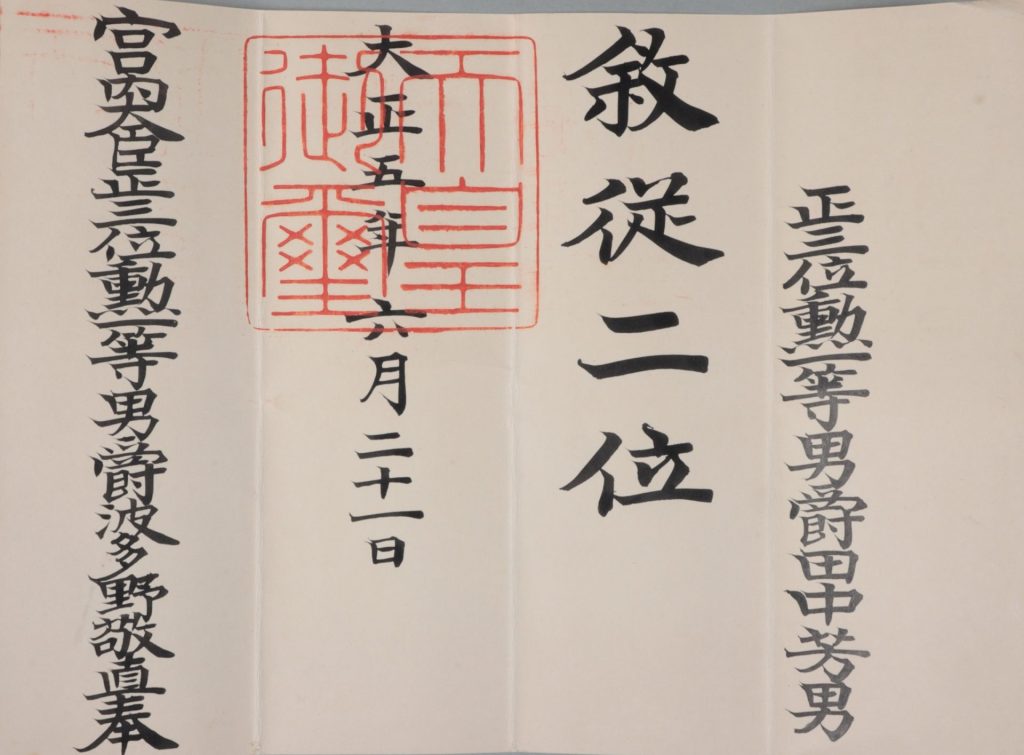 正三位勲一等男爵田中芳男
敘從二位
大正五年六月二十一日
天皇御璽
宮內大臣正三位勲一等男爵波多野敬直奉